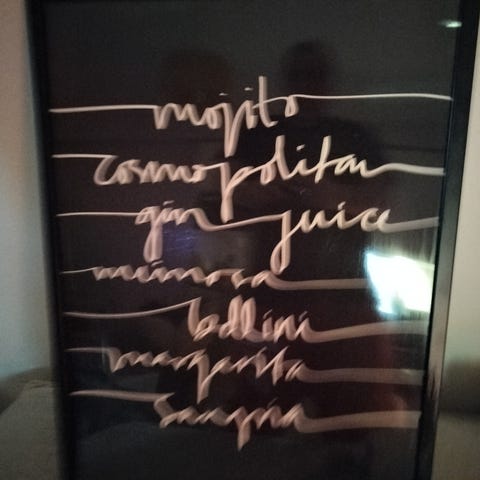 mojito
cosmopolitan
gin juice
mimosa
bellini
margarita
sangria